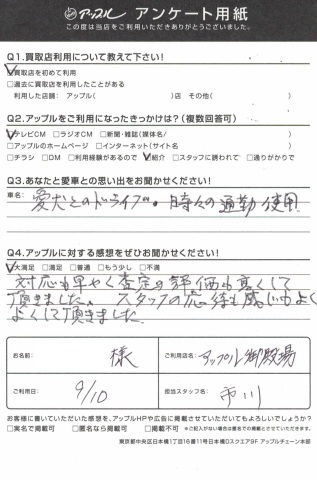 アップル アンケート用紙
この度は当店をご利用いただきありがとうございました。
Q1.買取店利用について教えて下さい!
☑買取店を初めて利用
□過去に買取店を利用したことがある
利用した店舗: アップル( )店 その他( )
Q2.アップルをご利用になったきっかけは?(複数回答可)
☑テレビCM □ラジオCM □新聞・雑誌(媒体名/ )
□アップルのホームページ □インターネット(サイト名 )
□チラシ □DM □利用経験があるので ☑紹介 □スタッフに誘われて □通りがかりで
Q3.あなたと愛車との思い出をお聞かせください!
車名:
愛犬とのドライブ。時々の通勤使用
Q4.アップルに対する感想をぜひお聞かせください!
☑大満足 □満足 □普通 □もう少し □不満
対応も早やく査定の評価も高くして
頂きました。スタッフの応待も感じもよく
よくして頂きました
お名前: 様
ご利用店名: アップル御殿場
ご利用日: 9/10
担当スタッフ名: 市川
お客様に書いていただいた感想を、アップルHPや広告に掲載させていただいてもよろしいでしょうか?
□実名で掲載可 □匿名なら掲載可 □掲載不可 ※ご記入がない場合は匿名での掲載とさせていただきます。
東京都中央区日本橋1丁目16番11号日本橋Dスクエア9F アップルチェーン本部